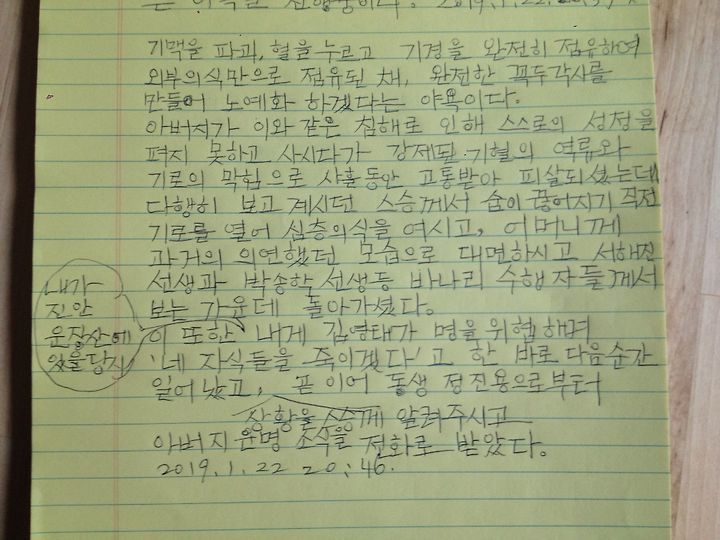 는 의식을 진행중이다. 2019.1.22.
기맥을 파괴, 혈을 누르고 기경을 완전히 점유하여
외부의식만으로 점유된 채, 완전한 꼭두각시를
만들어 노예화 하겠다는 야욕이다.
아버지가 이와같은 침해로 인해 스스로의 성정을
펴지 못하고 사시다가 강제된 기혈의 역류와
기로의 막힘으로 사흘동안 고통받아 피살되셨는데
다행히 보고계시던 스승께서 숨이 끊어지기 직전
기로를 열어 심층의식을 여시고, 어머니께
과거의 의연했던 모습으로 대면하시고 서해진
선생과 박송학 선생등 바나리 수행자들께서
보는 가운데 돌아가셨다.
내가
진안
운장산에
있을당시
이 또한 내게 김영태가 명을 위협하며
'네 자식들을 죽이겠다'고 한 바로 다음순간
일어났고, 곧이어 동생 정진용으로부터
상황을 스승께 알려주시고
아버지 운명 소식을 전화로 받았다.
2019.1.22 20:46.